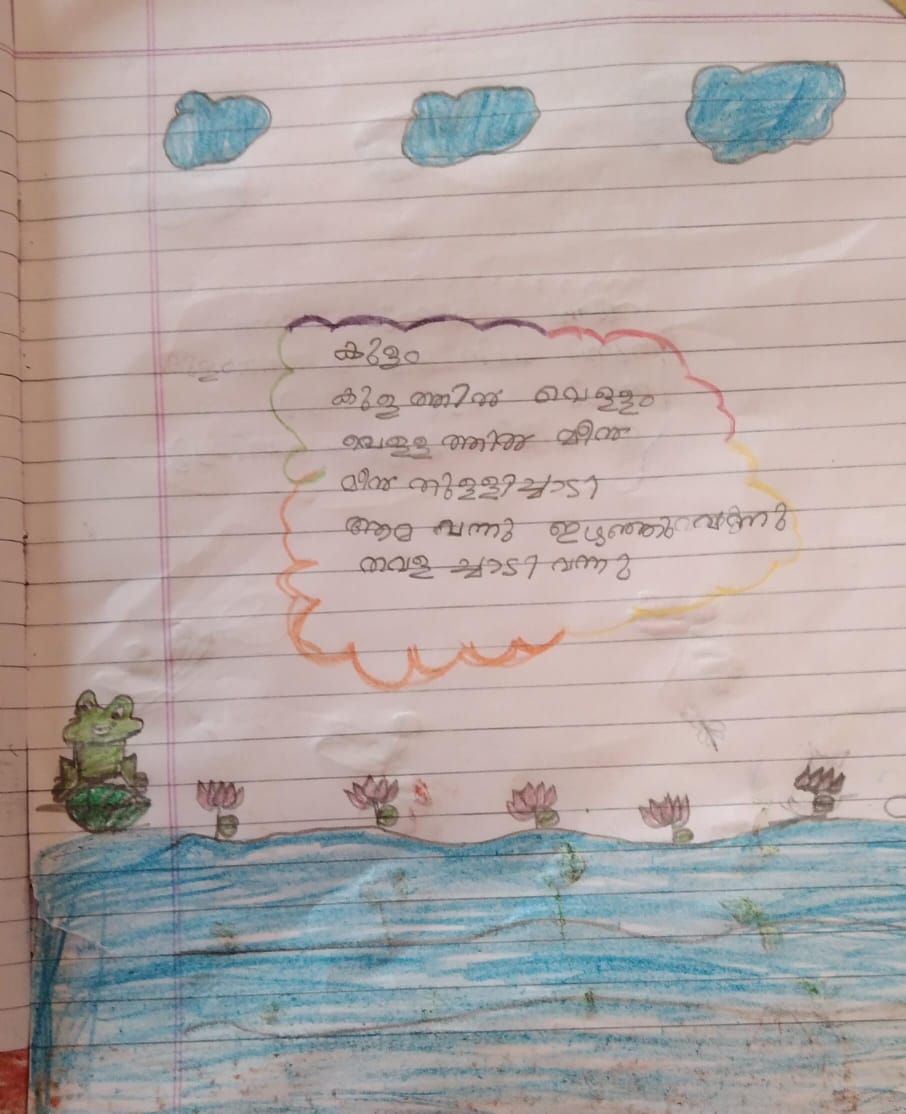 കുളം
കുളത്തിൽ വെള്ളം
വെള്ളത്തിൽ മീൻ
മീൻ തുള്ളിച്ചാടി
ആമ വന്നു ഇഴഞ്ഞു വന്നു
തവള ച്ചാടി വന്നു